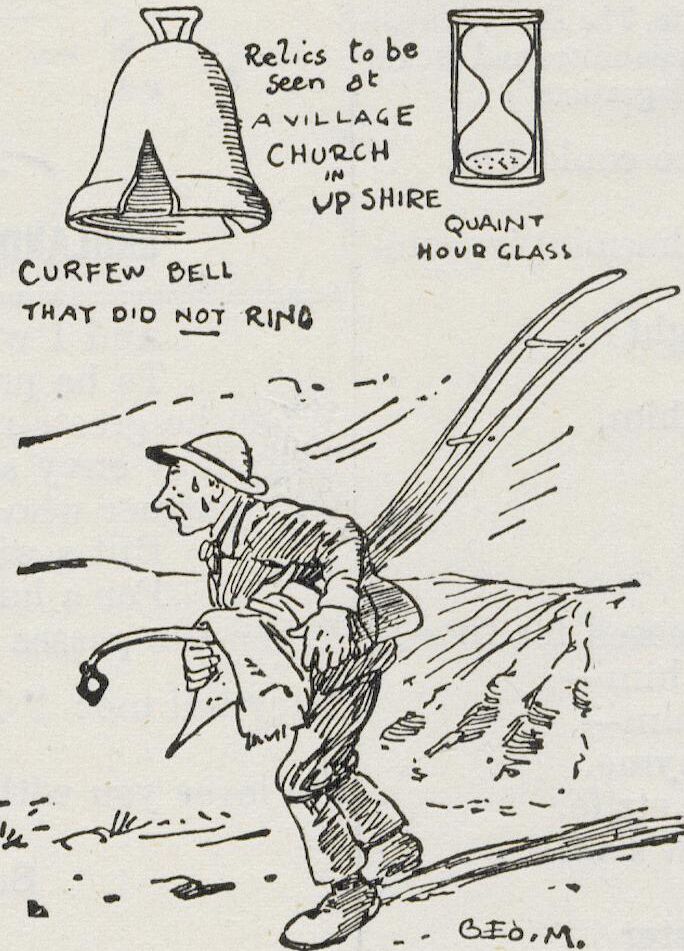 Relics to be
seen at
A VILLAGE
CHURCH
IN
UPSHIRE
QUAINT
HOUR GLASS
CURFEW BELL
THAT DID NOT RING
GEO. M.